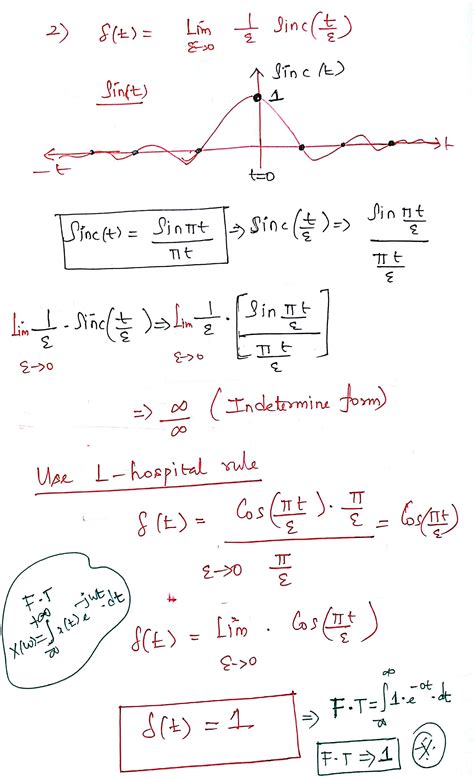 2) δ(t) = Lim ε→0 1/ε Sinc(t/ε)
Sin(t)
Sinc(t)
1
-t
t
t=0
Sinc(t) = Sin πt / πt ⇒ Sinc(t/ε) ⇒ Sin πt/ε / πt/ε
Lim ε→0 1/ε · Sinc(t/ε) ⇒ Lim ε→0 1/ε · [Sin πt/ε / πt/ε]
⇒ ∞/∞ (Indetermine form)
Use L-hospital rule
δ(t) = ε→0 Cos(πt/ε) · π/ε / π/ε = Cos(πt/ε)
F.T
X(ω) = ∫ +∞ -∞ x(t) e^-jωt · dt
δ(t) = Lim ε→0 · Cos(πt/ε)
δ(t) = 1 ⇒ F.T = ∫ ∞ -∞ 1·e^-0t · dt
F.T ⇒ 1